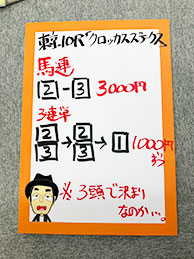 東京10R「クロッカスステークス」
馬連
2-3 3000円
3連単
2/3→2/3→1 1000円ずつ
※3頭で決まりなのか…。